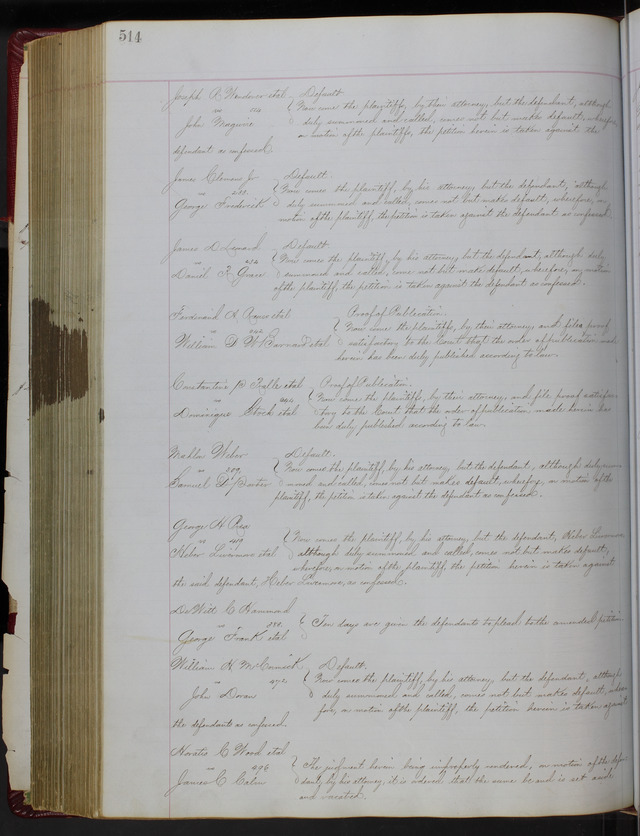 514
Joseph R. Vanderer etal. Default
vs { Now come the plaintiffs, by their attorney, but the defendant, although
John Maguire duly summoned and called, comes not but makes default, wherefore,
on motion of the plaintiffs, the petition herein is taken against the
defendant as confessed.
James Clemens Jr. Default.
vs { Now comes the plaintiff, by his attorney, but the defendant, although
George Frederick duly summoned and called, comes not but makes default, wherefore, on
motion of the plaintiff, the petition is taken against the defendant as confessed.
James D Leonard Default.
vs { Now comes the plaintiff, by his attorney, but the defendant, although duly
Daniel F. Grace summoned and called, come not but make default, wherefore, on motion
of the plaintiff, the petition is taken against the defendant as confessed.
Ferdinand L etal Proof of Publication.
vs { Now come the plaintiffs, by their attorney, and files proof
William D W Barnard etal satisfactory to the Court that the order of publication made
herein has been duly published according to law.
etal Proof of Publication.
vs { Now come the plaintiffs, by their attorney, and file proof satisfac-
Dominique Stock etal tory to the Court that the order of publication made herein has
been duly published according to law.
Weber Default.
vs 209 { Now comes the plaintiff, by his attorney, but the defendant, although duly sum-
Samuel moned and called, comes not but makes default, wherefore, on motion of the
plaintiff, the petition is taken against the defendant as confessed.
George H Rea
vs 419 { Now comes the plaintiff, by his attorney, but the defendant, Heber Livermore
Heber Livermore etal although duly summoned and called, comes not but makes default,
wherefore, on motion of the plaintiff, the petition herein is taken against
the said defendant, Heber Livermore, as confessed.
DeWitt C Hammond
vs { Ten days are given the defendants to plead to the amended petition.
George Frank etal
William H McCormick Default.
vs 472. { Now comes the plaintiff, by his attorney, but the defendant, although
John Doran duly summoned and called, comes not but makes default, where-
fore, on motion of the plaintiff, the petition herein is taken against
the defendant as confessed.
Horatio C Wood etal
vs { The judgment herein being improperly rendered, on motion of the defen-
James C Cabin dant, by his attorney, it is ordered that the same be and is set aside
and vacated.